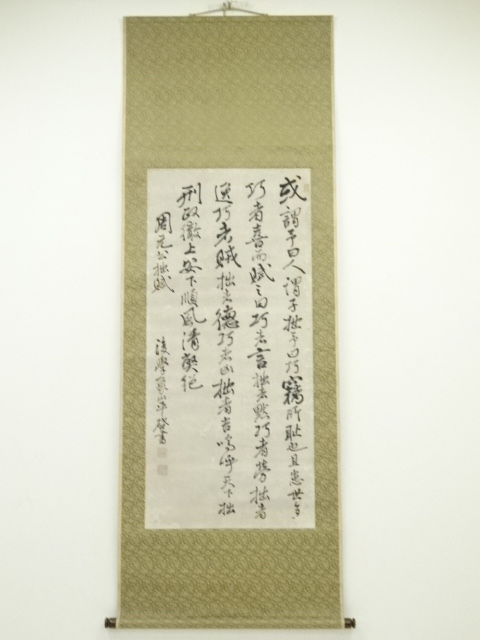 或謂予曰人謂子拙予曰巧竊所恥也且患世多
巧者喜而賦之曰巧者言拙者默巧者勞拙者
逸巧者賊拙者德巧者凶拙者吉嗚呼天下拙
刑政徹上安下順風清弊絕
周元公拙賦
後學
書